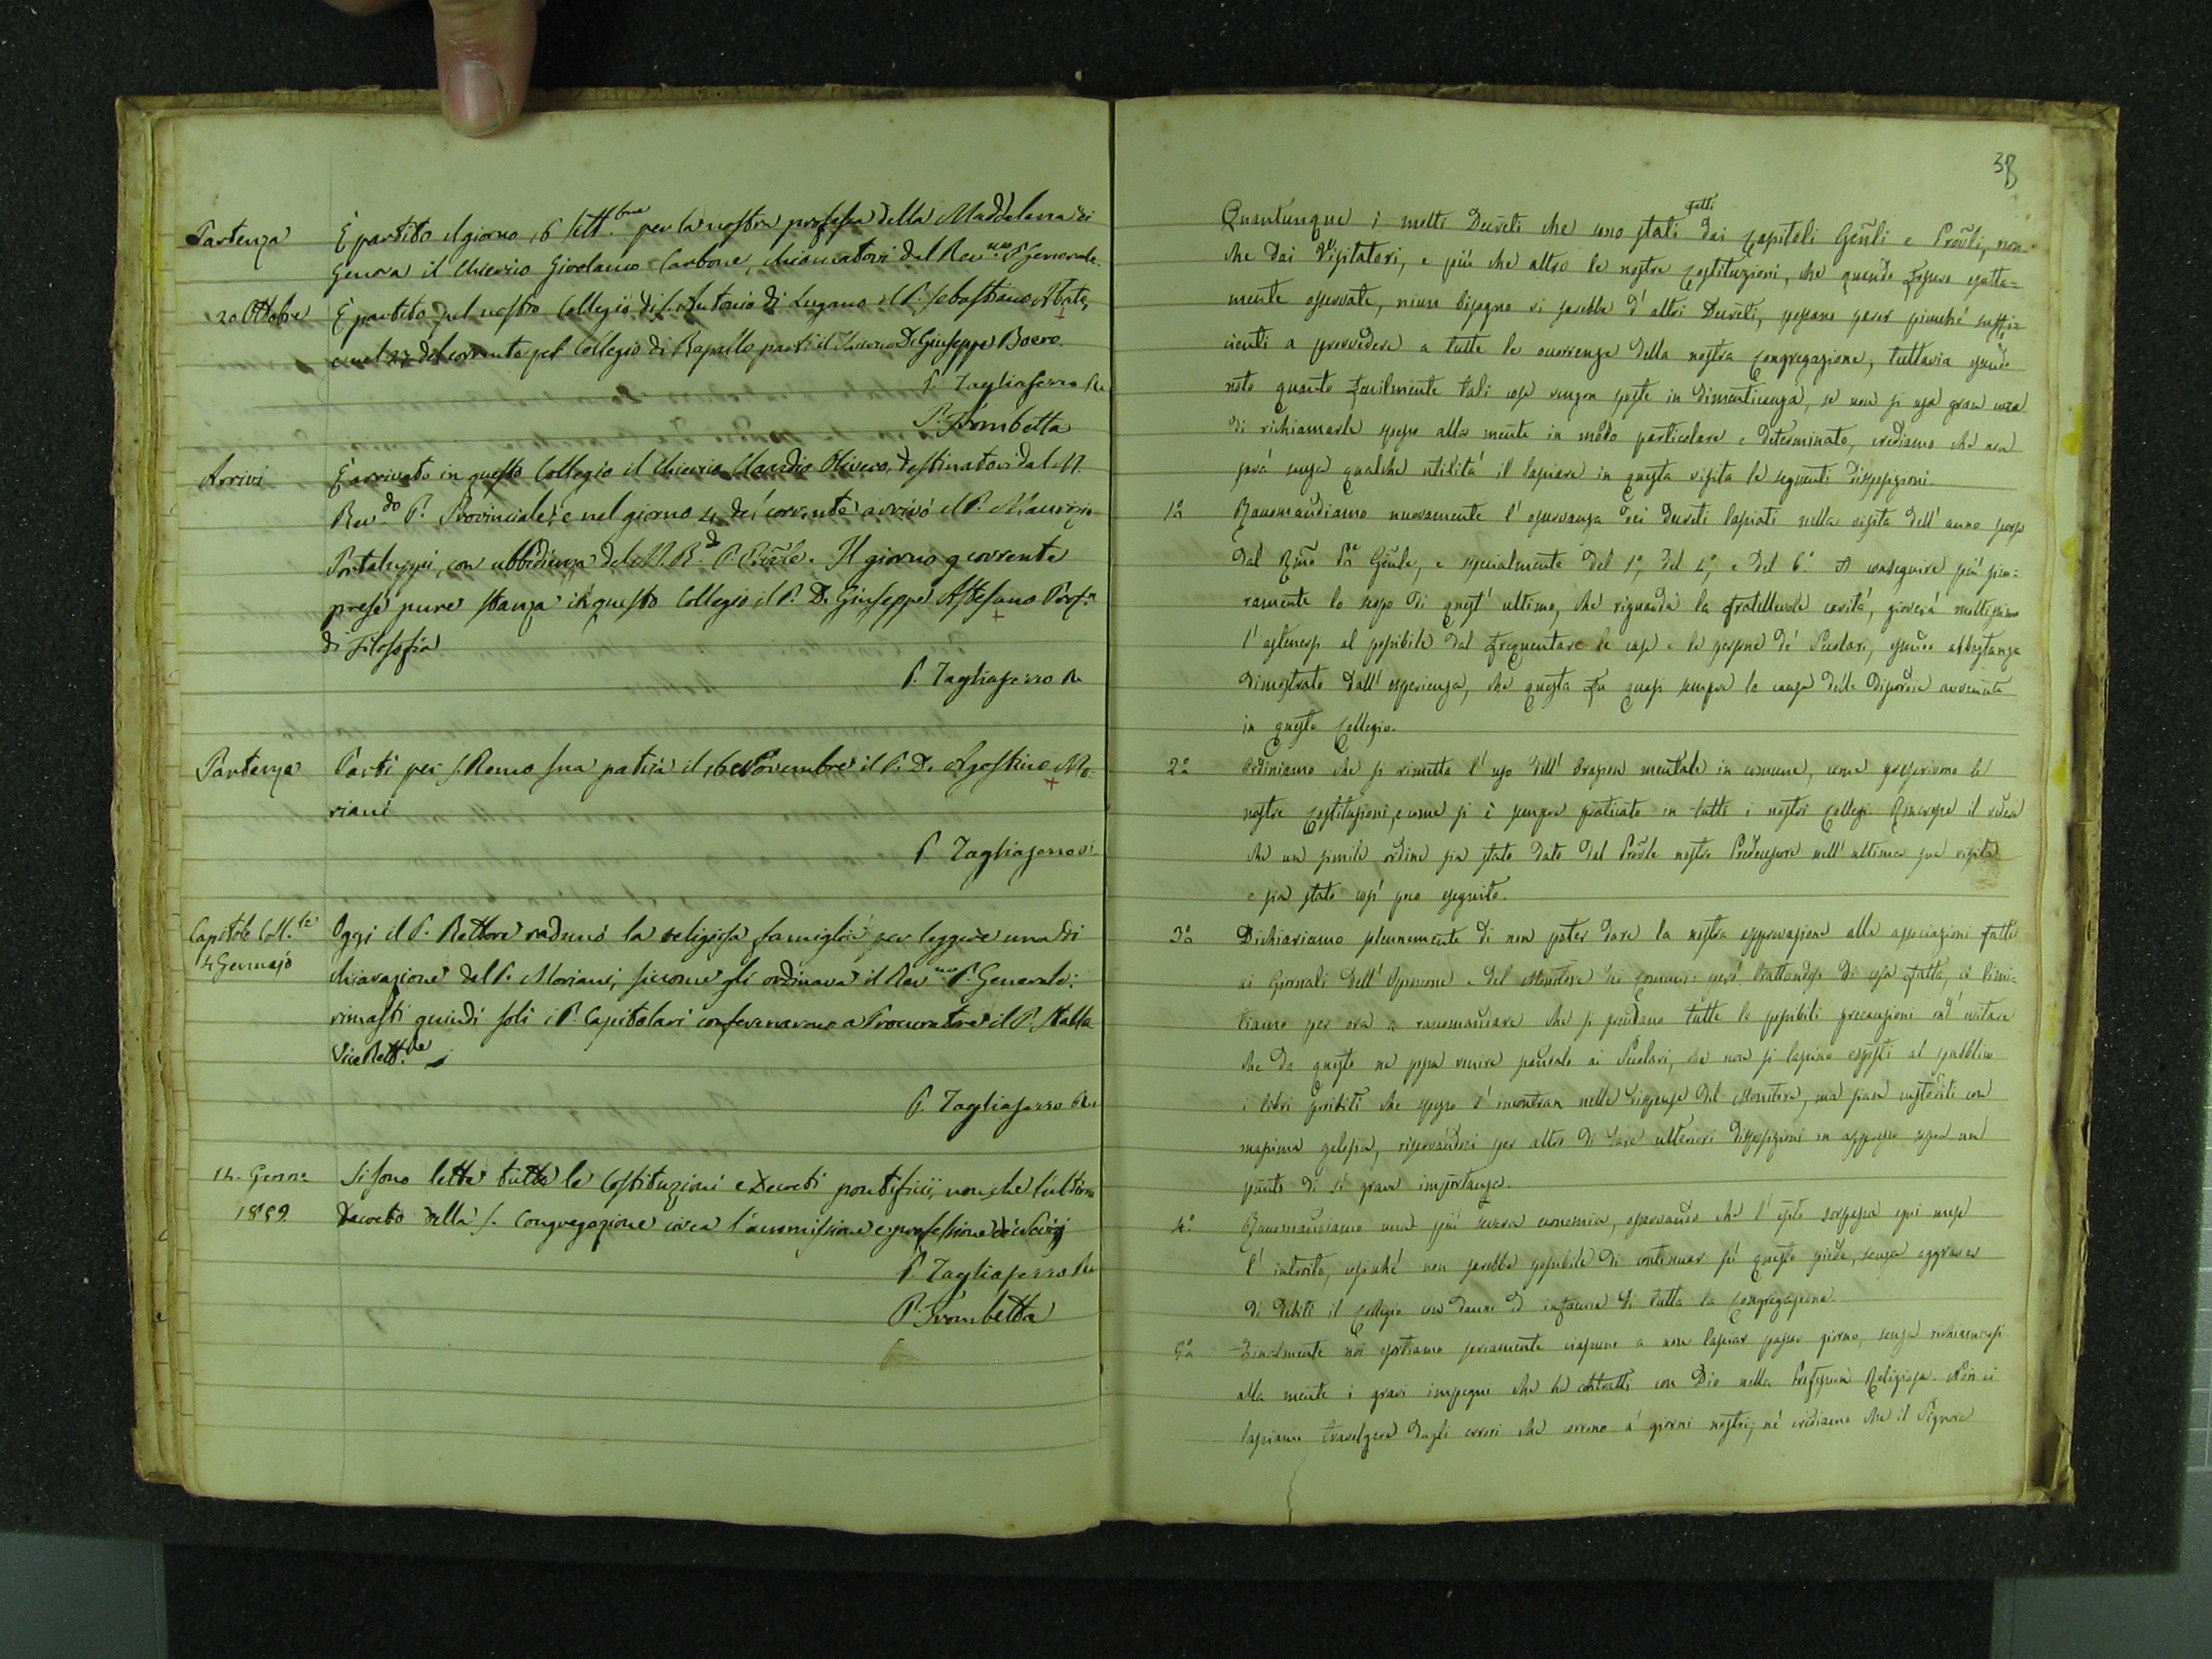 Partenza È partito il giorno 16 Sett.bre per la nostra professa della Maddalena di
Genova il chierico Girolamo Carbone, chiamatovi dal Rev.mo P. Generale.
20 Ottobre È partito pel nostro Collegio di S. Antonio di Lugano il P. Sebastiano Abate,
e nel 27 del corrente pel Collegio di Rapallo partì il Diacono D. Giuseppe Boero.
P. Tagliaferro Re
P. Trombetta
Arrivi È arrivato in questo Collegio il chierico Claudio Olivero, destinatovi dal M.
Rev.do P. Provinciale; e nel giorno 4 del corrente arrivò il P. Maurizio
Portaluppi, con ubbidienza del M. R.d P. Prov̄le. Il giorno 9 corrente
prese pure stanza in questo Collegio il P. D. Giuseppe Astesano Prof.e
di Filosofia
P. Tagliaferro Re
Partenza Partì per S. Remo sua patria il 16 Novembre il P. D. Agostino Mo-
riani
P. Tagliaferro
Capitolo Coll.le Oggi il P. Rettore radunò la religiosa famiglia per leggere una di
4 Gennajo chiarazione del P. Moriani, siccome gli ordinava il Rev.mo P. Generale:
rimasti quindi soli i P. Capitolari confermarono a Procuratore il P.
Vice Rett.re
P. Tagliaferro Re
14. Genn. Si sono lette tutte le Costituzioni e Decreti pontificii, non che l'ultimo
1859. Decreto della S. Congregazione circa l'ammissione e professione
P. Tagliaferro Re
P. Trombetta
38
Quantunque i molti Decreti che sono stati fatti dai Capitoli Gen̄li e Prov̄li, non
che dai Visitatori, e più che altro le nostre Costituzioni, che quando fossero esatta=
mente osservate, niun bisogno vi sarebbe d'altri Decreti, possano esser piucché suffi=
cienti a provvedere a tutte le occorrenze della nostra Congregazione, tuttavia essendo
noto quanto facilmente tali cose vengon poste in dimenticanza, se non si usa gran cura
di richiamarle spesso alla mente in modo particolare e determinato, crediamo che non
sarà senza qualche utilità il lasciare in questa visita le seguenti disposizioni.
1.a Raccomandiamo nuovamente l'osservanza dei decreti lasciati nella visita dell'anno scorso
dal Rm̄o P̄re Gen̄le, e specialmente del 1.o, del 4.o, e del 6.o A conseguire più sicu=
ramente lo scopo di quest'ultimo, che riguarda la fratellevole carità, gioverà moltissimo
l'astenersi al possibile dal frequentare le case e le persone de' Secolari, essendo abbastanza
dimostrato dall'esperienza, che questa fu quasi sempre la causa delle discordie avvenute
in questo Collegio.
2.a Ordiniamo che si rimetta l'uso dell'Orazion mentale in comune, come prescrivono le
nostre Costituzioni, e come si è sempre praticato in tutti i nostri Collegi. Rincresce il veder
che un simile ordine sia stato dato dal Prov̄le nostro Predecessore nell'ultima sua visita
e sia stato così poco eseguito.
3.a Dichiariamo solennemente di non poter dare la nostra approvazione alle associazioni fatte
ai Giornali dell'Opinione e del Monitore dei Comuni: però trattandosi di cosa fatta, ci limi=
tiamo per ora a raccomandare che si prendano tutte le possibili precauzioni ond'evitare
che da questo ne possa venire scandalo ai Secolari, che non si lascino esposti al pubblico
i libri proibiti che spesso s'incontran nelle dispense del Monitore, ma sian custoditi con
massima gelosia, riservandoci per altro di dare ulteriori disposizioni in appresso sopra un
punto di sì grave importanza.
4.o Raccomandiamo una più severa economia, osservando che l'esito sorpassa ogni mese
l'introito, cosicché non sarebbe possibile di continuar su questo piede, senza aggravar
di debiti il Collegio con danno ed infamia di tutta la Congregazione.
5.a Finalmente noi esortiamo seriamente ciascuno a non lasciar passar giorno, senza richiamarsi
alla mente i gravi impegni che ha contratti con Dio nella Professione Religiosa. Non ci
lasciamo travolgere dagli errori che corrono a' giorni nostri; né crediamo che il Signore